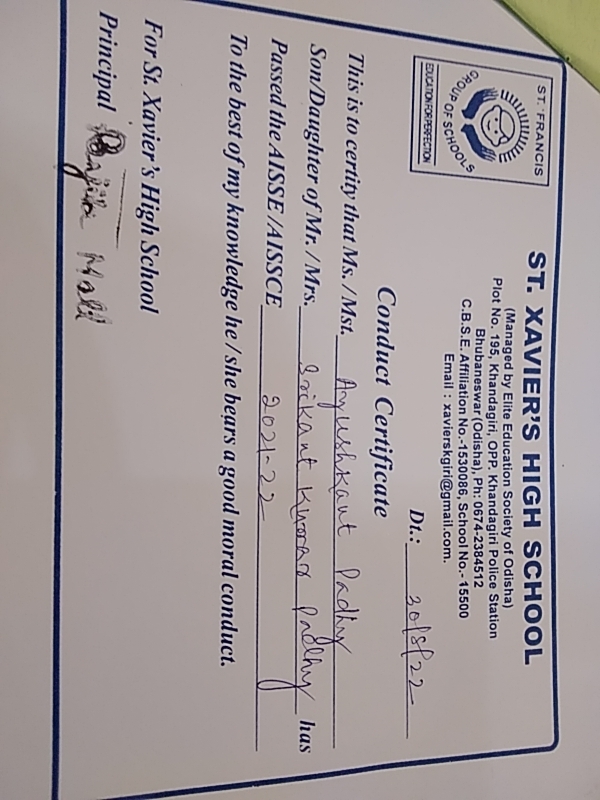 ST. FRANCIS
GROUP OF SCHOOLS
EDUCATION FOR PERFECTION
ST. XAVIER'S HIGH SCHOOL
(Managed by Elite Education Society of Odisha)
Plot No. 195, Khandagiri, OPP. Khandagiri Police Station
Bhubaneswar (Odisha) Ph: 0674-2384512
C.B.S.E. Affiliation No.-1530086, School No.- 15500
Email : xavierskgiri@gmail.com.
Dt.: 30/8/22
Conduct Certificate
This is to certify that Ms. / Mst. Ayushkant Padhy
Son/Daughter of Mr. / Mrs. Srikant Kumar Padhy has
Passed the AISSE /AISSCE 2021-22
To the best of my knowledge he / she bears a good moral conduct.
For St. Xavier's High School
Principal